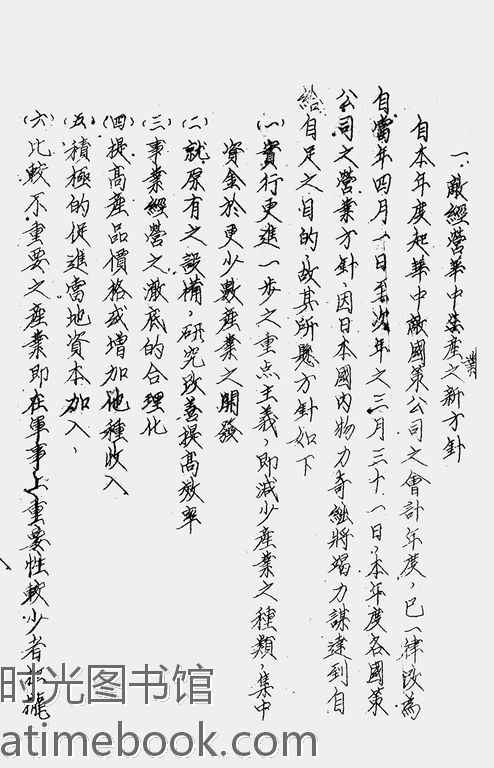 一、敵經營華中產業之新方針
自本年度起華中敵國策公司之會計年度，已一律改為
自當年四月一日至次年之三月三十一日，本年度各國策
公司之營業方針，因日本國內物力奇絀將竭力謀達到自
給自足之目的，故其所懸方針如下
(一)實行更進一步之重点主義，即減少產業之種類，集中
資金於更少數產業之開發
(二)就原有之設備，研究改善提高效率
(三)事業經營之澈底的合理化
(四)提高產品價格或增加他種收入
(五)積極的促進當地資本加入，
(六)比較不重要之產業即在軍事上重要性較少者
时光图书馆
atimebook.com